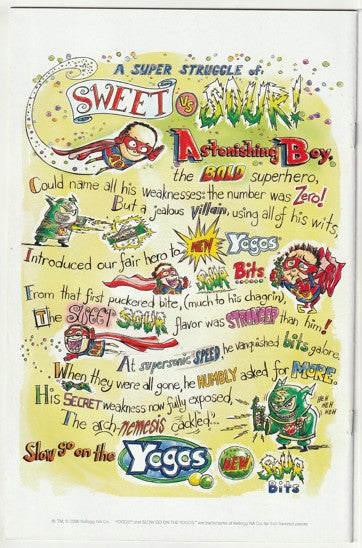 A SUPER STRUGGLE of:
SWEET VS SOUR!
Astonishing Boy,
the BOLD superhero,
Could name all his weaknesses: the number was Zero!
But a jealous Villain, using all of his wits,
Introduced our fair hero to NEW Yogos
SOUR Bits.
From that first puckered bite, (much to his chagrin),
The SWEET SOUR flavor was STRONGER than him!
At supersonic SPEED he vanquished bits galore.
When they were all gone, he HUMBLY asked for MORE.
His SECRET weakness now fully exposed,
The arch-nemesis cackled...
HEH HEH HEH
Slow go on the Yogos NEW SOUR BITS
®, TM, © 2006 Kellogg NA Co. YOGOS® and SLOW GO ON THE YOGOS™ are trademarks of Kellogg NA Co. for fruit flavored pieces